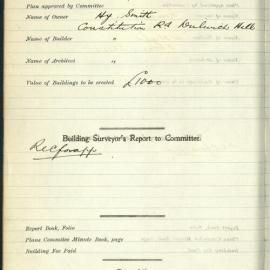 Plan approved by Committee
Name of Owner " Hy Smith
Constitution Rd Dulwich Hill
Name of Builder "
Name of Architect "
Value of Buildings to be erected £1000
Building Surveyor's Report to Committee.
Rec for app
Report Book, Folio
Plans Committee Minute Book, page
Building Fee Paid